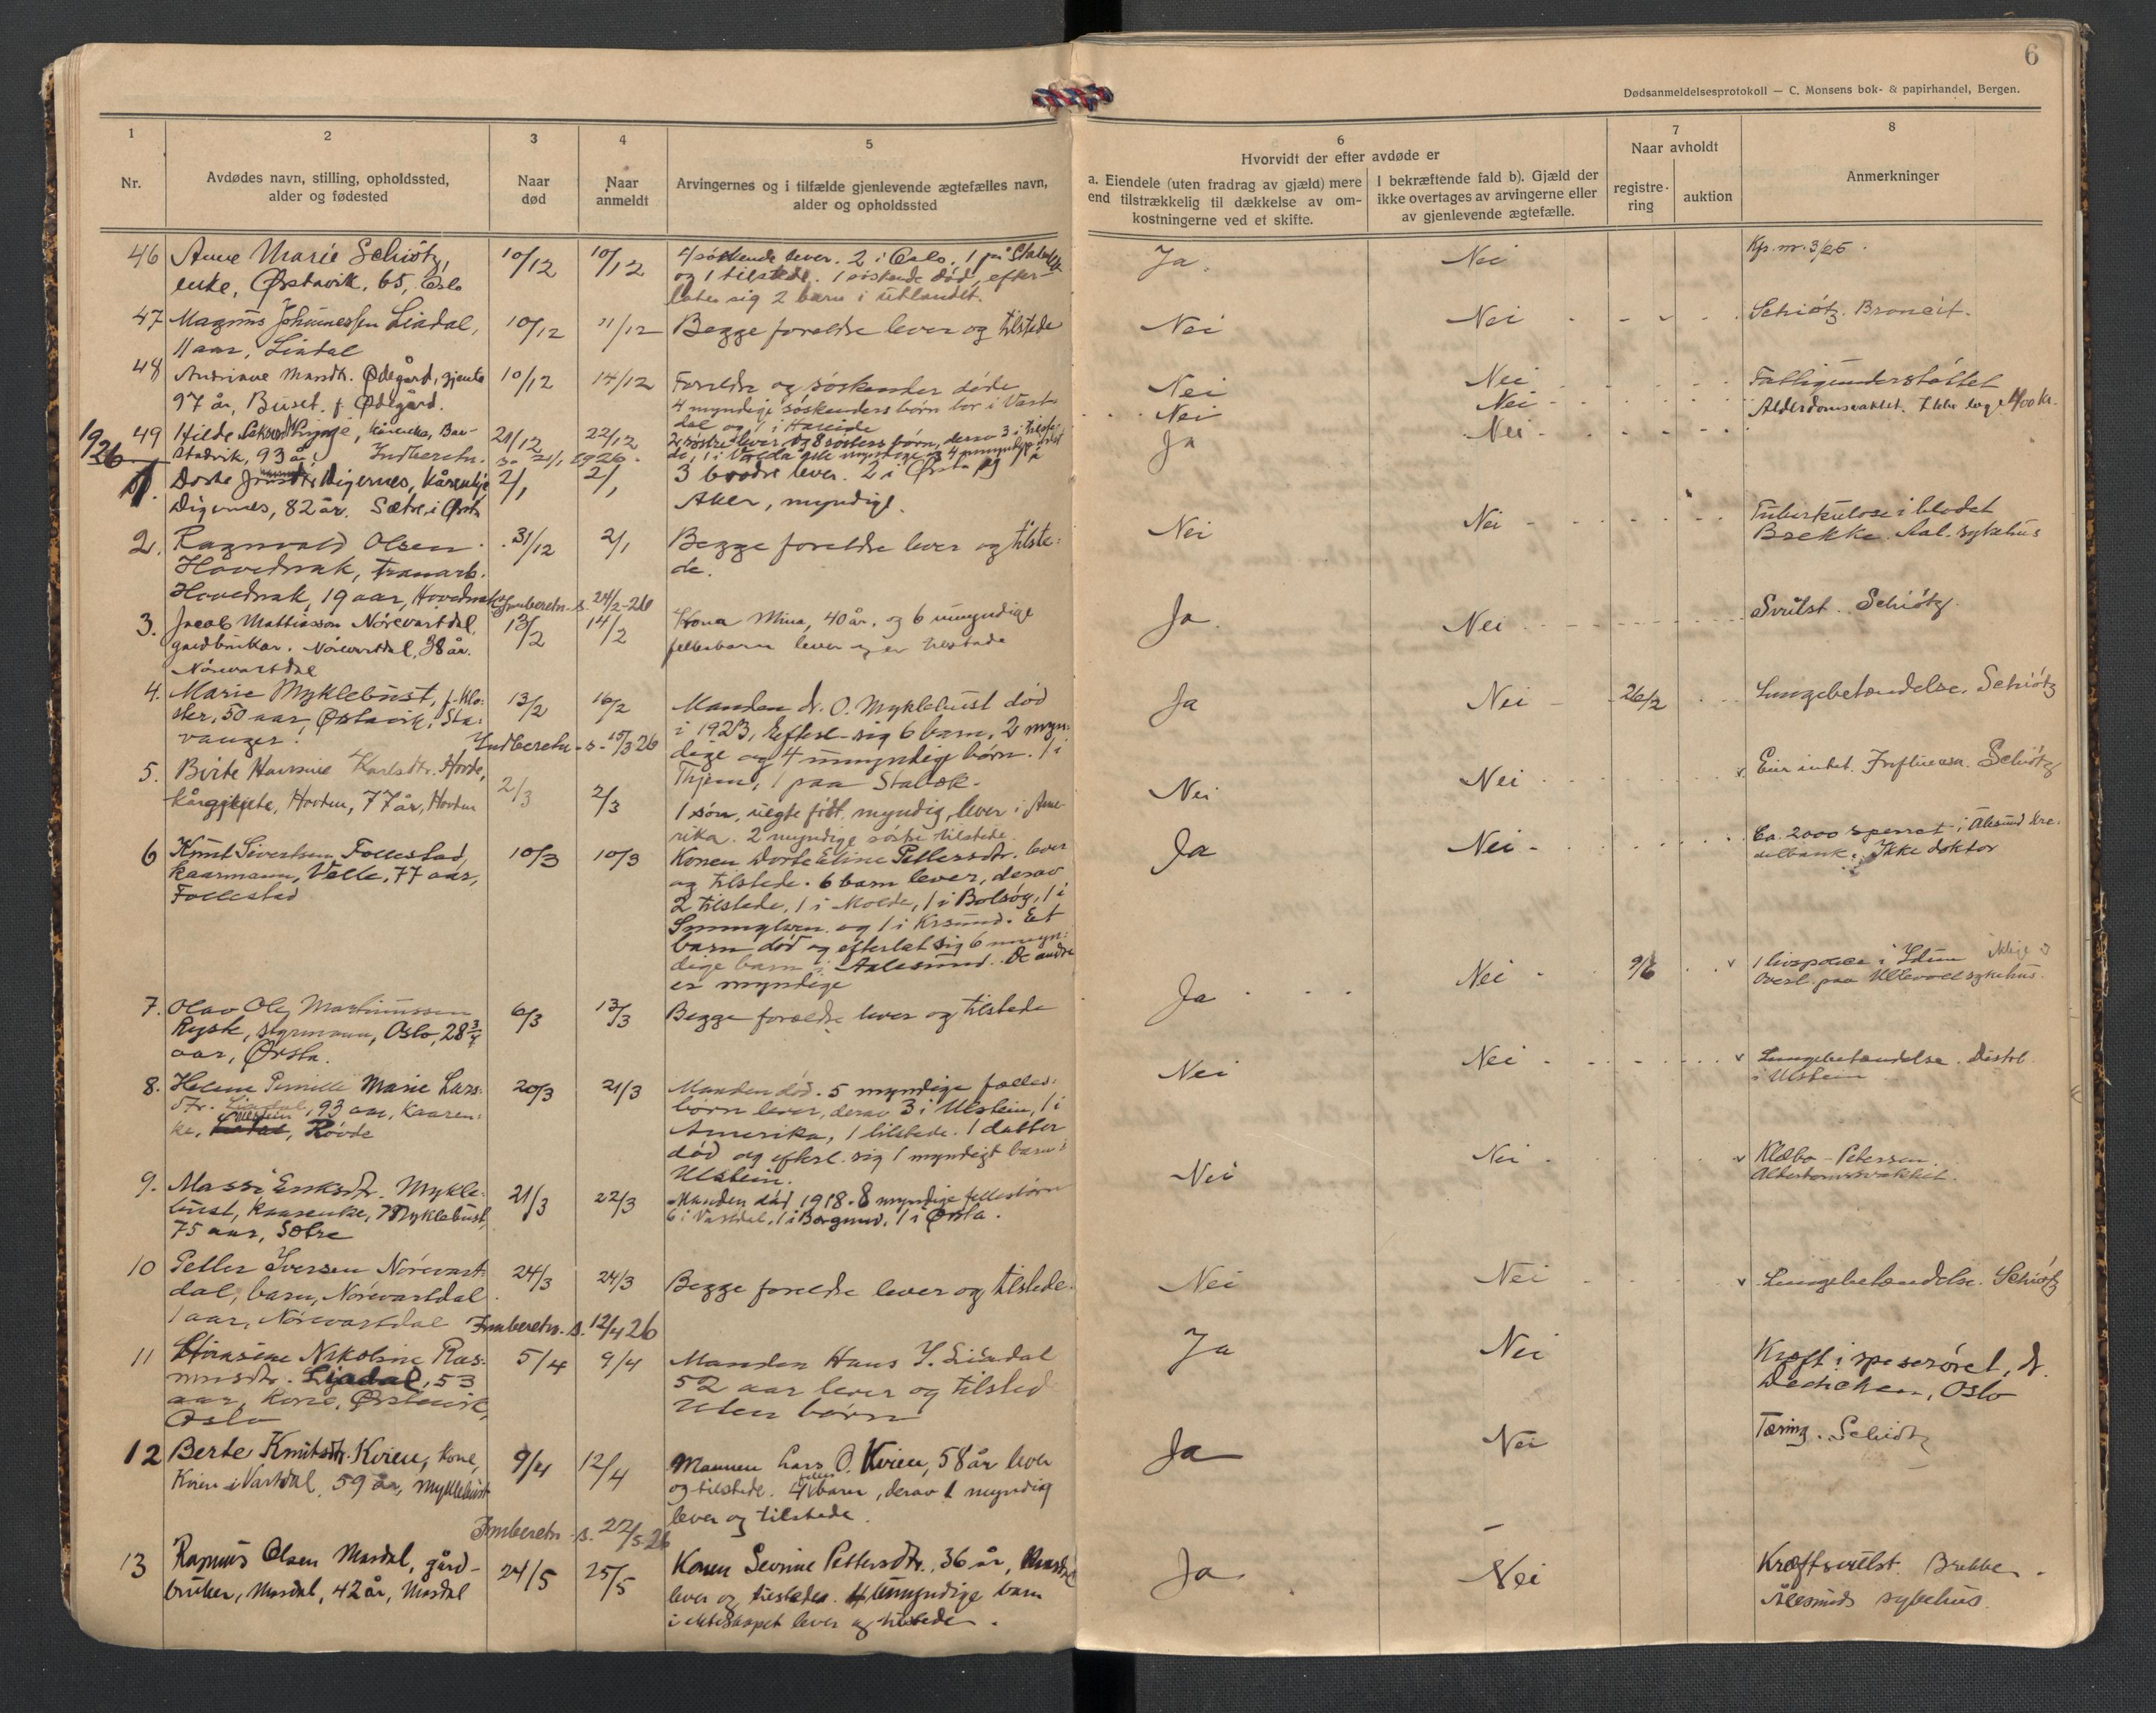 6
Dødsanmeldelsesprotokoll — C. Monsens bok- & papirhandel, Bergen.
1
2
3
4
5
6
7
8
Nr.
Avdødes navn, stilling, opholdssted,
alder og fødested
Naar
død
Naar
anmeldt
Arvingernes og i tilfælde gjenlevende ægtefælles navn,
alder og opholdssted
Hvorvidt der efter avdøde er
a. Eiendele (uten fradrag av gjæld) mere
end tilstrækkelig til dækkelse av om-
kostningerne ved et skifte.
I bekræftende fald b). Gjæld der
ikke overtages av arvingerne eller
av gjenlevende ægtefælle.
Naar avholdt
registre-
ring
auktion
Anmerkninger
46 Anne Marie Schiötz, 10/12 10/12 4 søskende lever. 2 i Oslo, 1 på Ja. Nei
enke, Ørstavik, 65, Oslo og 1 tilstede. 1 søskende død, efter-
later sig 2 barn i utlandet.
47 Magnus Johannessen Liadal, 10/12 11/12 Begge foreldre lever og tilstede Nei Nei Schiötz.
11 aar, Liadal
48 Ødegård, gjente 10/12 14/12 Foreldre og søskender døde Nei Nei Fattigunderstøttet
97 år, Buset. f. Ødegård. 4 myndige søskenders børn bor i Vart-
dal og 1 i Hareide Nei Nei Alderdomssvakhet. 400 kr.
1926
49 Hilde 21/12 22/12 2 søstre lever og 8 søsters børn, derav 3 Ja Nei
93 år Indberetn. s. 21/1 1926.
1. Dorte Digernes, 2/1 2/1 3 brødre lever. 2 i Ørsta og 1 i
Digernes, 82 år. Sætre i Ørsta Aker, myndige.
2. Ragnvald Olsen 31/12 2/1 Begge foreldre lever og tilste- Nei Nei Tuberkulose i blodet
Hovdenak, tranarb. de. Brekke. Aal. sykehus
Hovdenak, 19 aar, Hovdenak Innberetn. s. 24/2-26
3. Jacob Mattiasson Nörevartdal, 13/2 14/2 Kona Mina, 40 år, og 6 umyndige Ja. Nei Svulst. Schiötz.
gardbrukar. Nörevartdal, 38 år. fellesbarn lever og er tilstede
Nörevartdal
4. Marie Myklebust, f. Klo- 13/2 16/2 Manden dr. O. Myklebust död Ja Nei 26/2 Lungebetændelse. Schiötz
ster, 50 aar, Ørstavik, Sta- i 1923, Efterl. sig 6 barn, 2 myn-
vanger. Indberetn. s. 15/3 26 dige og 4 umyndige børn. 1 i
5. Birte Karlsdtr. Hovde, 2/3 2/3 1 paa Stabæk. Nei Nei Eier intet. Influensa. Schiötz
kårgjente, Hovden, 77 år, Hovden 1 søn, uegte født, myndig, lever i Ame-
rika. 2 myndige søstre tilstede.
6 Knut Sivertsen Follestad, 10/3 10/3 Konen Dorte Eline Pettersdtr. lever Ja Nei Ca. 2000 sperret i Ålesund Kre-
kaarmann, Velle, 77 aar, og tilstede. 6 barn lever, derav ditbank. Ikke doktor
Follestad 2 tilstede, 1 i Molde, 1 i Bolsøy, 1 i
og 1 i Krsund. Et
barn død og efterlat sig 6 umyn-
dige barn i Aalesund. De andre
er myndige
7. Olav Ole Martinussen 6/3 13/3 Begge foreldre lever og tilstede Ja Nei 9/6 1 livspolice i Idun
styrmann, Oslo, 28 3/4 Overl. paa Ullevaal sykehus.
aar, Ørsta.
8. Helene Pernille Marie Lars- 20/3 21/3 Manden död. 5 myndige felles- Nei Nei Lungebetændelse. Distrl.
dtr. Liadal, 93 aar, Kaaren- börn lever, derav 3 i Ulstein, 1 i i Ulstein
ke, Ulstein, Rövde Amerika, 1 tilstede. 1 datter
död og efterl. sig 1 myndigt barn i
Ulstein.
9. Massi Eriksdtr. Mykle- 21/3 22/3 Manden död 1918. 8 myndige fellesbörn Nei Nei Klæbo-Petersen
bust, kaarenke, Myklebust, 6 i Vartdal, 1 i Borgund, 1 i Ørsta. Alderdomssvakhet.
75 aar, Sætre
10 Petter Iversen Nörevart- 24/3 24/3 Begge foreldre lever og tilstede. Nei Nei Lungebetændelse. Schiötz
dal, barn, Nörevartdal
1 aar, Nörevartdal Innberetn. s. 12/4 26
11 Nikoline Ras- 5/4 9/4 Manden Hans J. Liadal Ja Nei Kreft i spiserøret, dr.
musdtr. Liadal, 53 52 aar lever og tilsted Dedichen, Oslo
aar, kone, Ørstavik, Uten børn
Oslo
12 Berte Knutsdtr. Kvien, kone, 9/4 12/4 Mannen Lars O. Kvien, 58 år lever Ja Nei Tæring. Schiötz
Kvien i Vartdal, 59 år, Myklebust og tilstede. 4 felles barn, derav 1 myndig
lever og tilstede.
Innberetn. s. 22/5 26
13 Rasmus Olsen Mosdal, gård- 24/5 25/5 Konen Sevrine Pettersdtr. 36 år, Ja Nei Kræftsvulst. Brekke.
bruker, Mosdal, 42 år, Mosdal lever og tilstede. 4 umyndige barn Ålesunds sykehus.
i ekteskapet lever og tilstede.